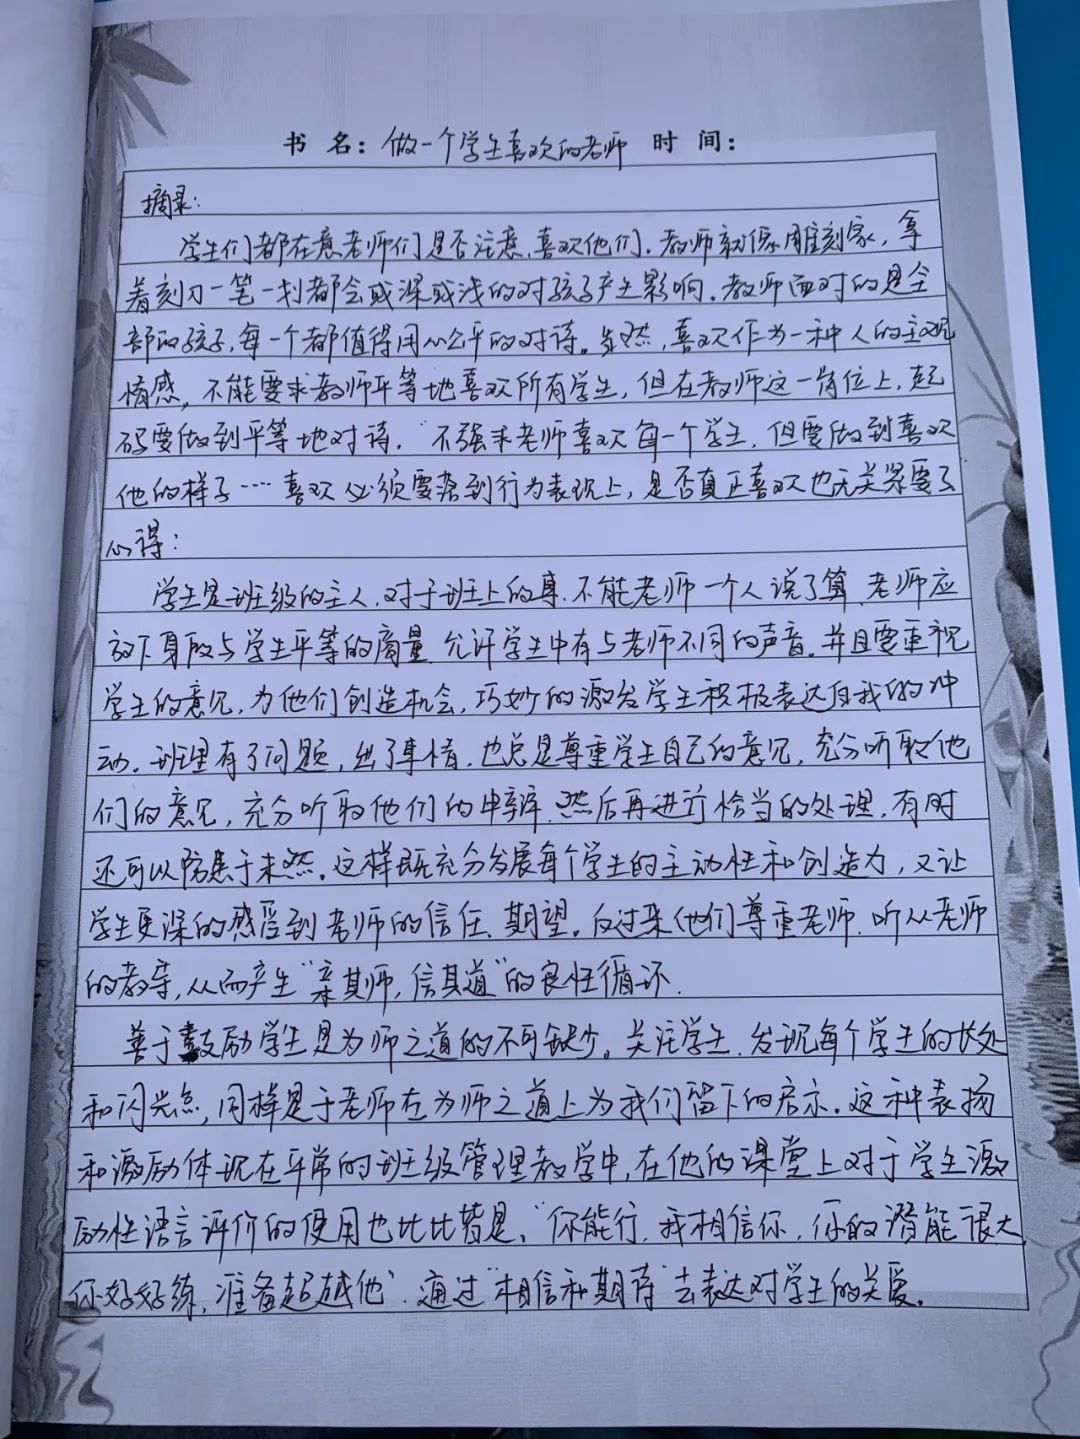 书 名：做一个学生喜欢的老师 时 间：
摘录：
学生们都在意老师们是否注意、喜欢他们。教师就像雕刻家，拿
着刻刀一笔一划都会或深或浅的对孩子产生影响。教师面对的是全
部的孩子，每一个都值得用心公平的对待。当然，喜欢作为一种人的主观
情感，不能要求教师平等地喜欢所有学生，但在教师这一岗位上，起
码要做到平等地对待。"不强求老师喜欢每一个学生，但要做到喜欢
他的样子……喜欢必须要落到行为表现上，是否真正喜欢也无关紧要了
心得：
学生是班级的主人，对于班上的事，不能老师一个人说了算，老师应
放下身段与学生平等的商量，允许学生中有与老师不同的声音。并且要重视
学生的意见，为他们创造机会，巧妙的激发学生积极表达自我的冲
动。班里有了问题，出了事情，也总是尊重学生自己的意见，充分听取他
们的意见，充分听取他们的申辩，然后再进行恰当的处理，有时
还可以防患于未然。这样既充分发展每个学生的主动性和创造力，又让
学生更深的感受到老师的信任、期望。反过来他们尊重老师，听从老师
的教导，从而产生"亲其师，信其道"的良性循环。
善于鼓励学生是为师之道的不可缺少。关注学生，发现每个学生的长处
和闪光点，同样是于老师在为师之道上为我们留下的启示。这种表扬
和激励体现在平常的班级管理教学中，在他的课堂上对于学生激
励性语言评价的使用也比比皆是，"你能行，我相信你，你的潜能很大
你好好练，准备超越他"。通过"相信和期待"去表达对学生的关爱。